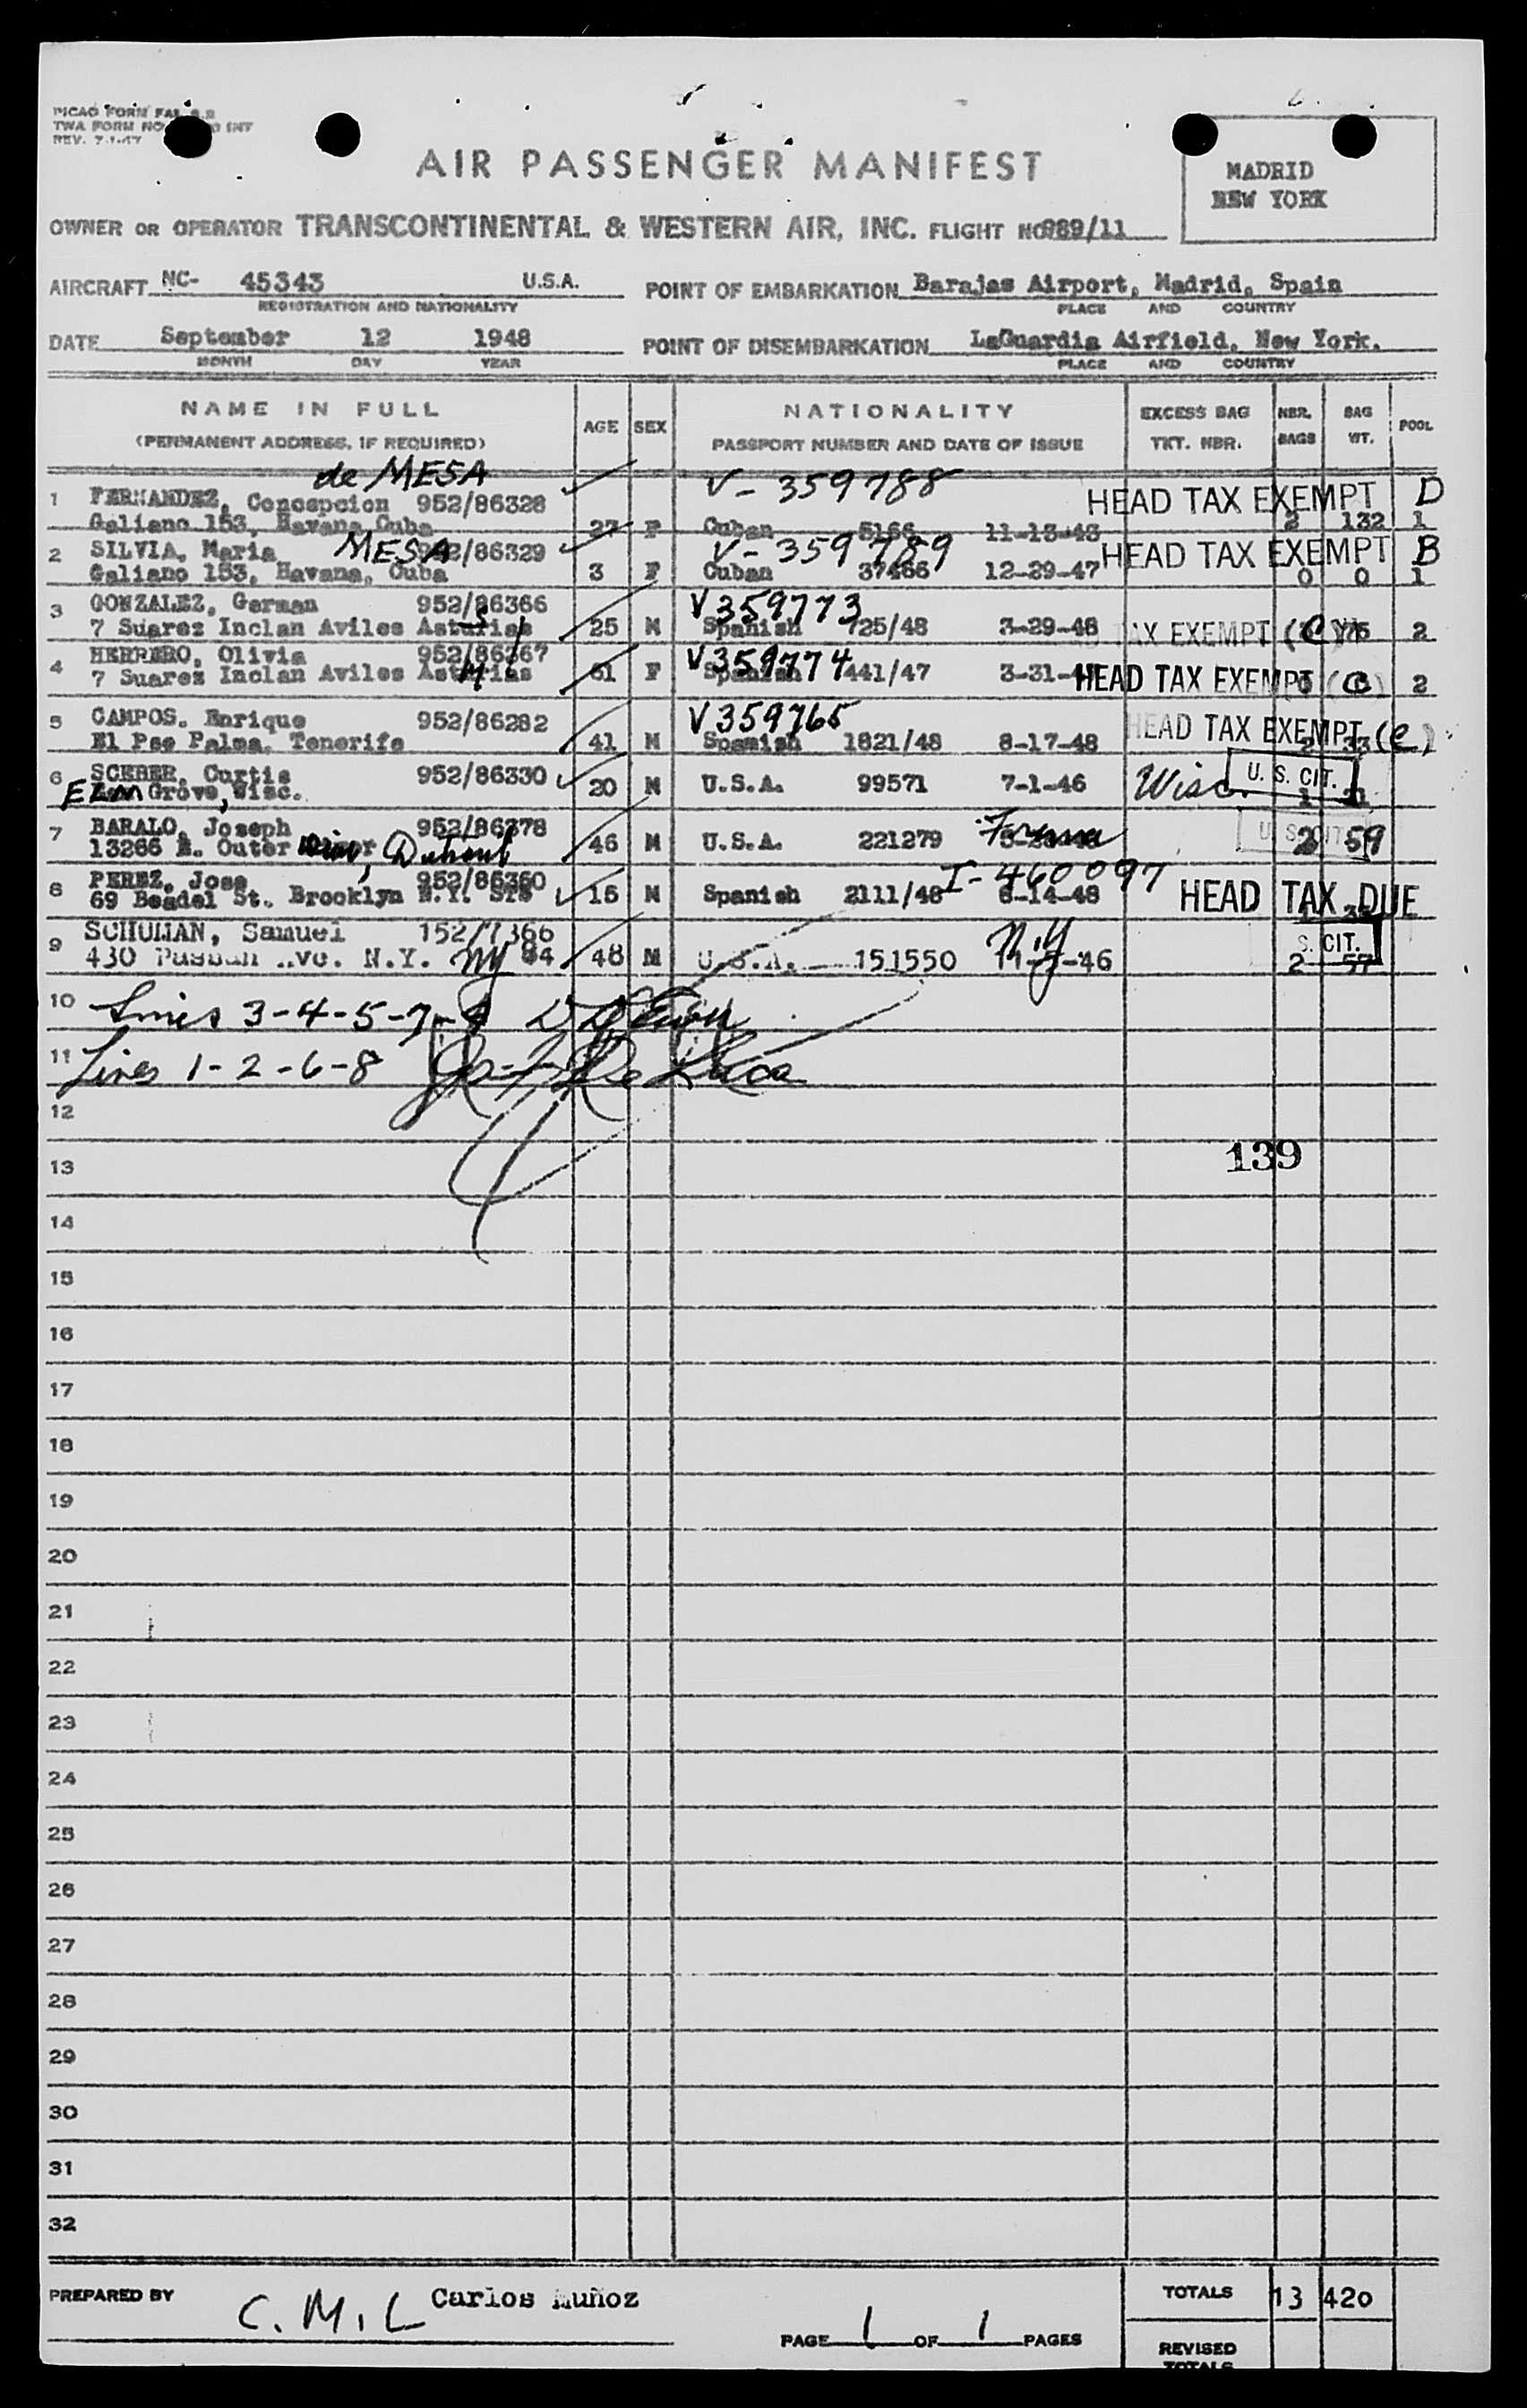 PICAO FORM FAL
TWA FORM NO INT
REV. 7-1-47
AIR PASSENGER MANIFEST
MADRID
NEW YORK
OWNER OR OPERATOR TRANSCONTINENTAL & WESTERN AIR, INC. FLIGHT NO 989/11
AIRCRAFT NC- 45343 U.S.A. POINT OF EMBARKATION Barajas Airport, Madrid, Spain
REGISTRATION AND NATIONALITY PLACE AND COUNTRY
DATE September 12 1948 POINT OF DISEMBARKATION LaGuardia Airfield, New York.
MONTH DAY YEAR PLACE AND COUNTRY
NAME IN FULL AGE SEX NATIONALITY EXCESS BAG NBR. BAG POOL
(PERMANENT ADDRESS, IF REQUIRED) PASSPORT NUMBER AND DATE OF ISSUE TKT. NBR. BAGS WT.
de MESA V-359788
1 FERNANDEZ, Concepcion 952/86328 HEAD TAX EXEMPT D
Galiano 153, Havana Cuba 27 F Cuban 5166 11-13-43 2 132 1
2 SILVIA, Maria MESA /86329 V-359789 HEAD TAX EXEMPT B
Galiano 153, Havana, Cuba 3 F Cuban 37466 12-29-47 0 0 1
3 GONZALEZ, German 952/86366 V359773
7 Suarez Inclan Aviles Asturias 25 M Spanish 725/48 3-29-48 TAX EXEMPT (C) 2
4 HERRERO, Olivia 952/86367 V359774
7 Suarez Inclan Aviles Asturias 61 F Spanish 441/47 3-31- HEAD TAX EXEMPT (C) 2
5 CAMPOS. Enrique 952/86282 V359765 HEAD TAX EXEMPT (C)
El Pso Palma, Tenerife 41 M Spanish 1821/48 8-17-48 2 33
6 SCEBER, Curtis 952/86330 20 M U.S.A. 99571 7-1-46 Wisc. U. S. CIT.
ELM Grove, Wisc. 1
7 BARALO, Joseph 952/86378 U. S. CIT
13266 E. Outer Drive, Detroit 46 M U.S.A. 221279 2 59
8 PEREZ, Jose 952/86360 I-460097
69 Beadel St., Brooklyn N.Y. 15 M Spanish 2111/48 6-14-48 HEAD TAX DUE
9 SCHUMAN, Samuel 152/ 366 N.Y S. CIT.
430 N.Y. NY 48 M U.S.A. 151550 -46 2 57
10 Lines 3-4-5-7-9
11 Lines 1-2-6-8 De Luca
12
13 139
14
15
16
17
18
19
20
21
22
23
24
25
26
27
28
29
30
31
32
PREPARED BY C.M.L Carlos Muñoz TOTALS 13 420
PAGE 1 OF 1 PAGES REVISED
TOTALS